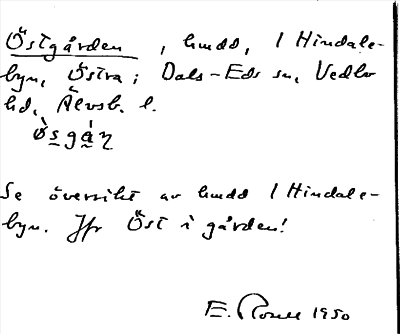 Östgården, hmdd, 1 Hindale-
byn, Östra; Dals-Eds sn, Vedbo
hd, Älvsb. l.
ösgán
Se översikt av hmdd 1 Hindale-
byn. Jfr Öst i gården!
E. 1950